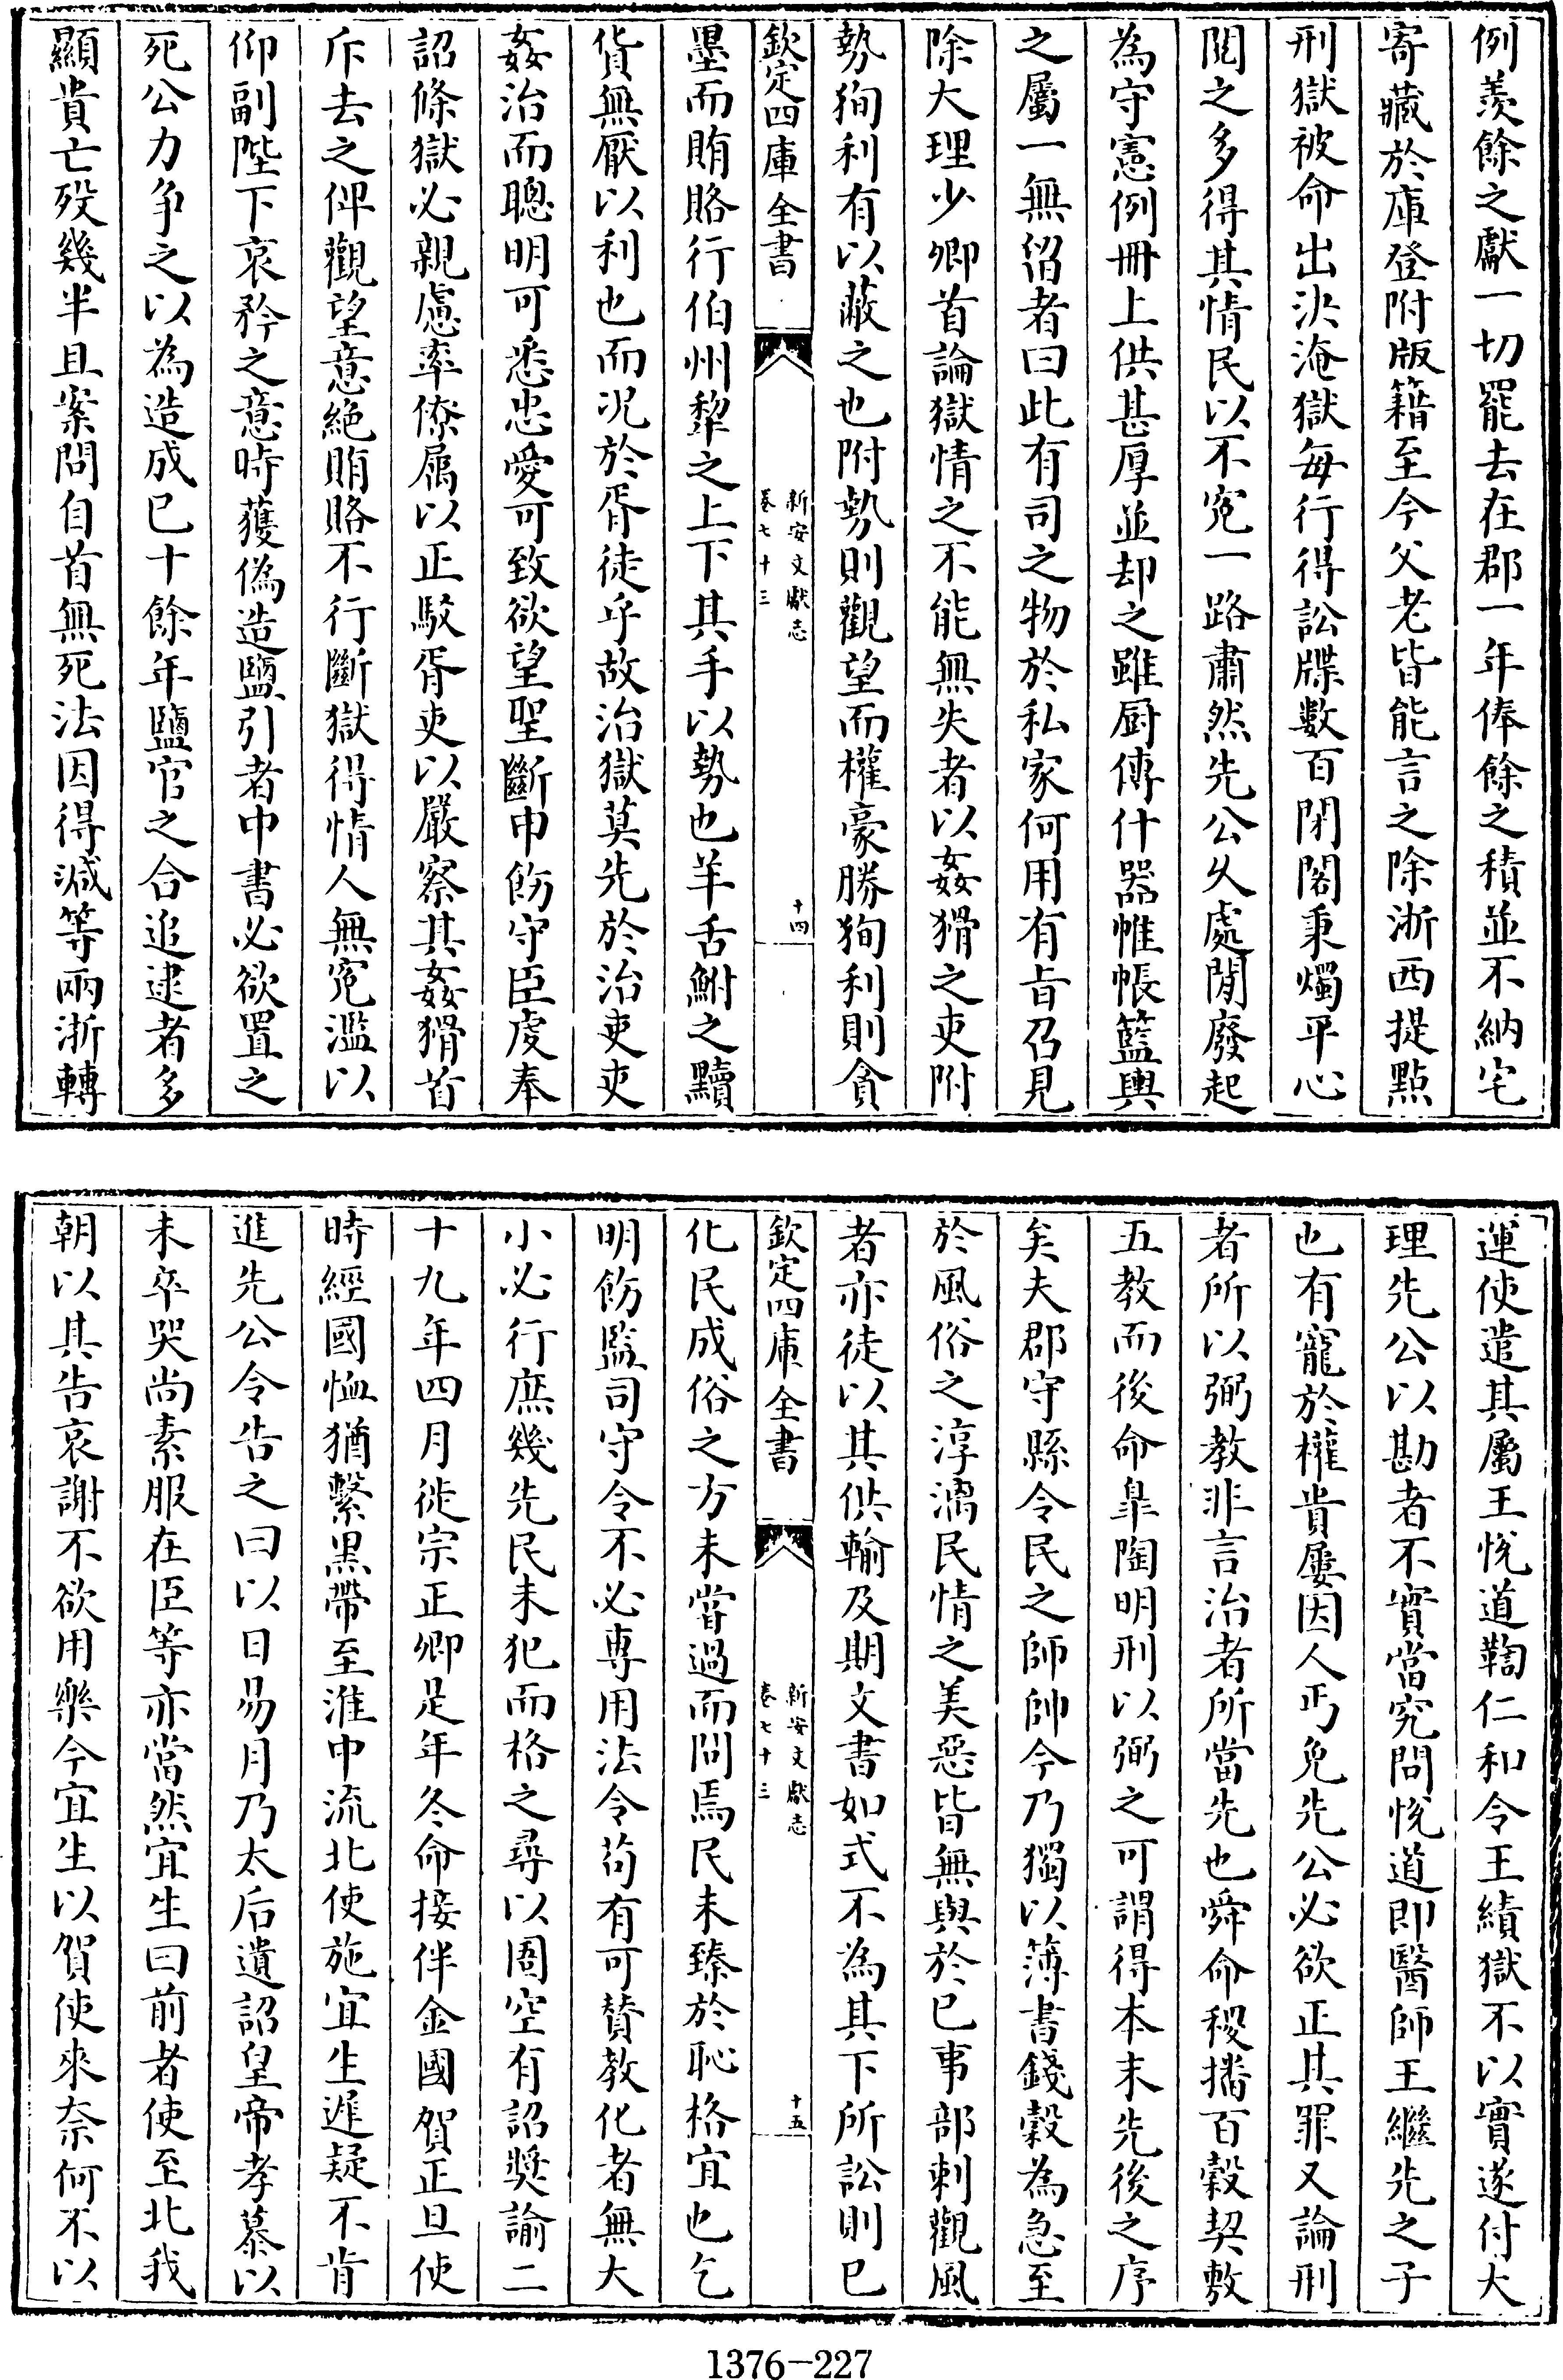 例羨餘之獻一切罷去在郡一年俸餘之積並不納宅
寄藏於庫登附版籍至今父老皆能言之除浙西提點
刑獄被命出決淹獄每行得訟牒數百閉閣秉燭平心
閱之多得其情民以不寃一路肅然先公乆處閒廢起
為守憲例冊上供甚厚並却之雖厨傳什器帷帳籃輿
之屬一無留者曰此有司之物於私家何用有旨召見
除大理少卿首論獄情之不能無失者以姦猾之吏附
勢狥利有以蔽之也附勢則觀望而權豪勝狥利則貪
欽定四庫全書
新安文獻志
卷七十三
十四
墨而賄賂行伯州犂之上下其手以勢也羊舌鮒之黷
貨無厭以利也而况於胥徒乎故治獄莫先於治吏吏
姦治而聰明可悉忠愛可致欲望聖斷申飭守臣䖍奉
詔條獄必親慮率僚属以正馭胥吏以嚴察其姦猾首
斥去之俾觀望意絶賄賂不行斷獄得情人無寃濫以
仰副陛下哀矜之意時獲偽造鹽引者中書必欲置之
死公力争之以為造成已十餘年鹽官之合追逮者多
顯貴亡殁幾半且案問自首無死法因得減等兩浙轉
運使遣其屬王悅道鞫仁和令王績獄不以實遂付大
理先公以勘者不實當究問悅道即醫師王繼先之子
也有寵於權貴屢因人丐免先公必欲正其罪又論刑
者所以弼教非言治者所當先也舜命稷播百穀契敷
五教而後命臯陶明刑以弼之可謂得本末先後之序
矣夫郡守縣令民之師帥今乃獨以簿書錢穀為急至
於風俗之淳漓民情之美惡皆無與於已事部刺觀風
者亦徒以其供輸及期文書如式不為其下所訟則已
欽定四庫全書
新安文獻志
卷七十三
十五
化民成俗之方未嘗過而問焉民未臻於恥格宜也乞
明飭監司守令不必専用法令茍有可贊教化者無大
小必行庶幾先民未犯而格之尋以圄空有詔奬諭二
十九年四月徙宗正卿是年冬命接伴金國賀正旦使
時經國恤猶繫黑帶至淮中流北使施宜生遲疑不肯
進先公令告之曰以日易月乃太后遺詔皇帝孝慕以
未卒哭尚素服在臣等亦當然宜生曰前者使至北我
朝以其告哀謝不欲用樂今宜生以賀使來奈何不以
1376-227